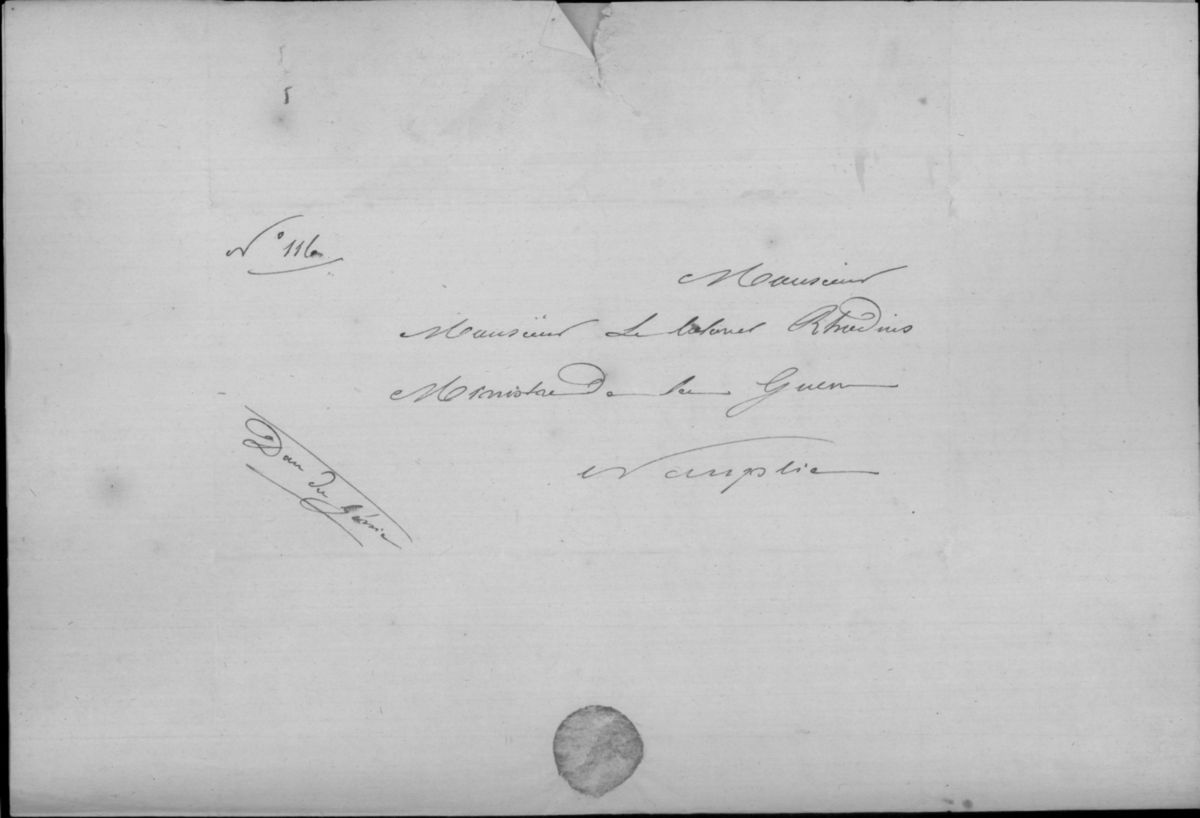 N° 116
Monsieur
Monsieur Le Colonel Rhodius
Ministre De la Guerre
Nauplie
du Génie